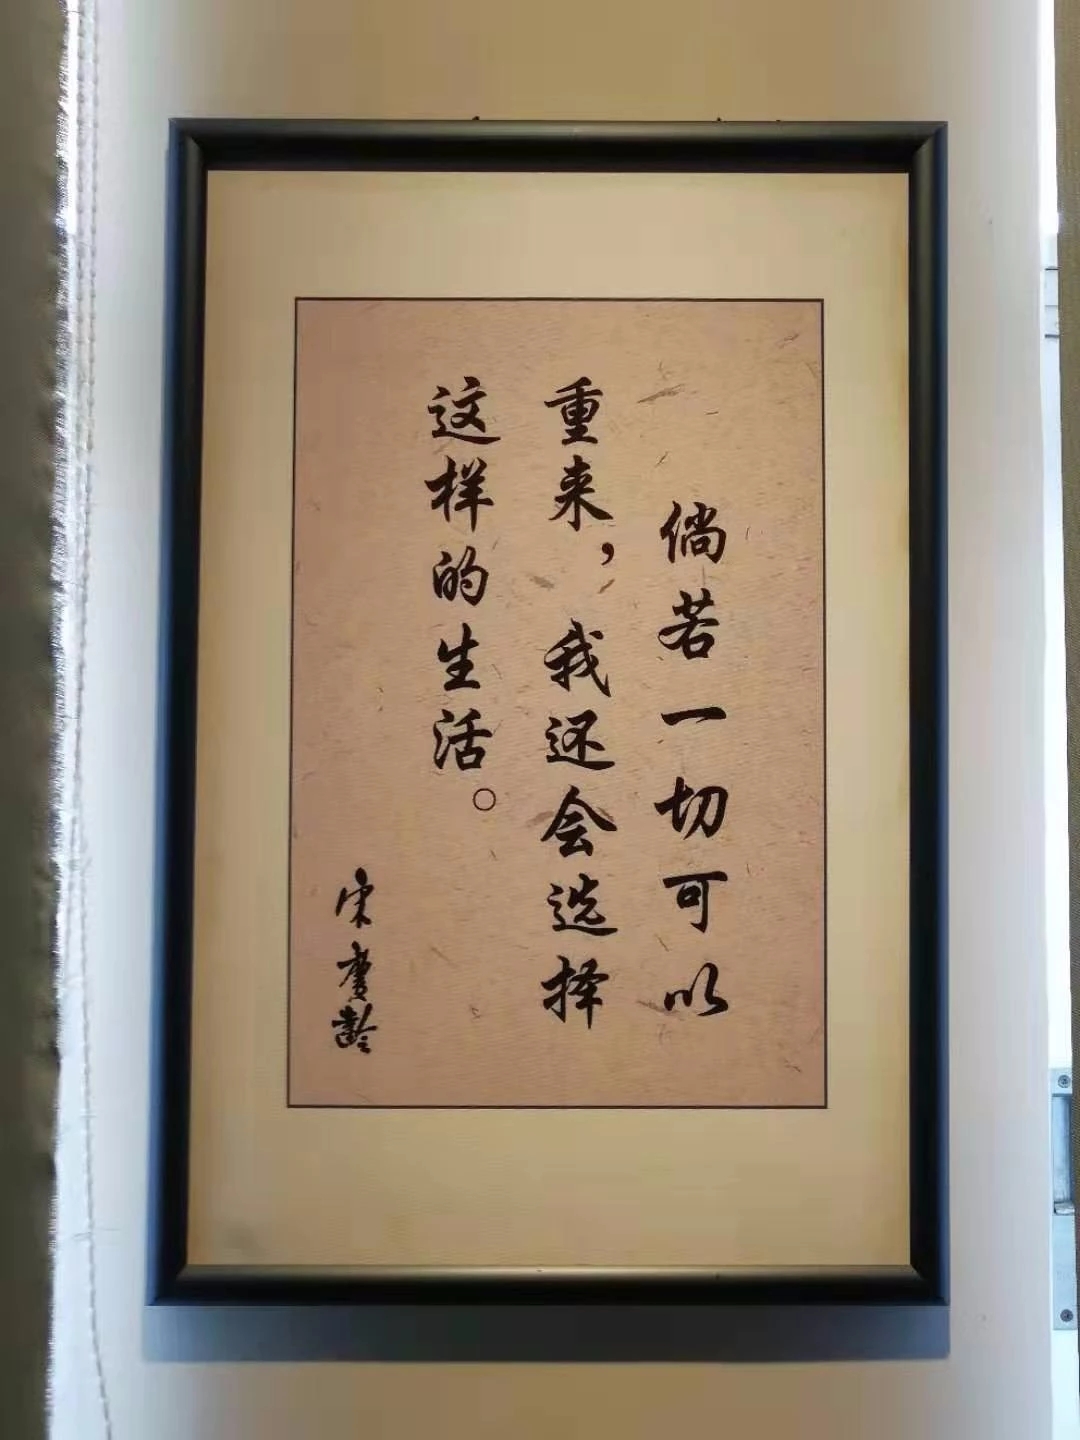 倘若一切可以
重来，我还会选择
这样的生活。
宋庆龄